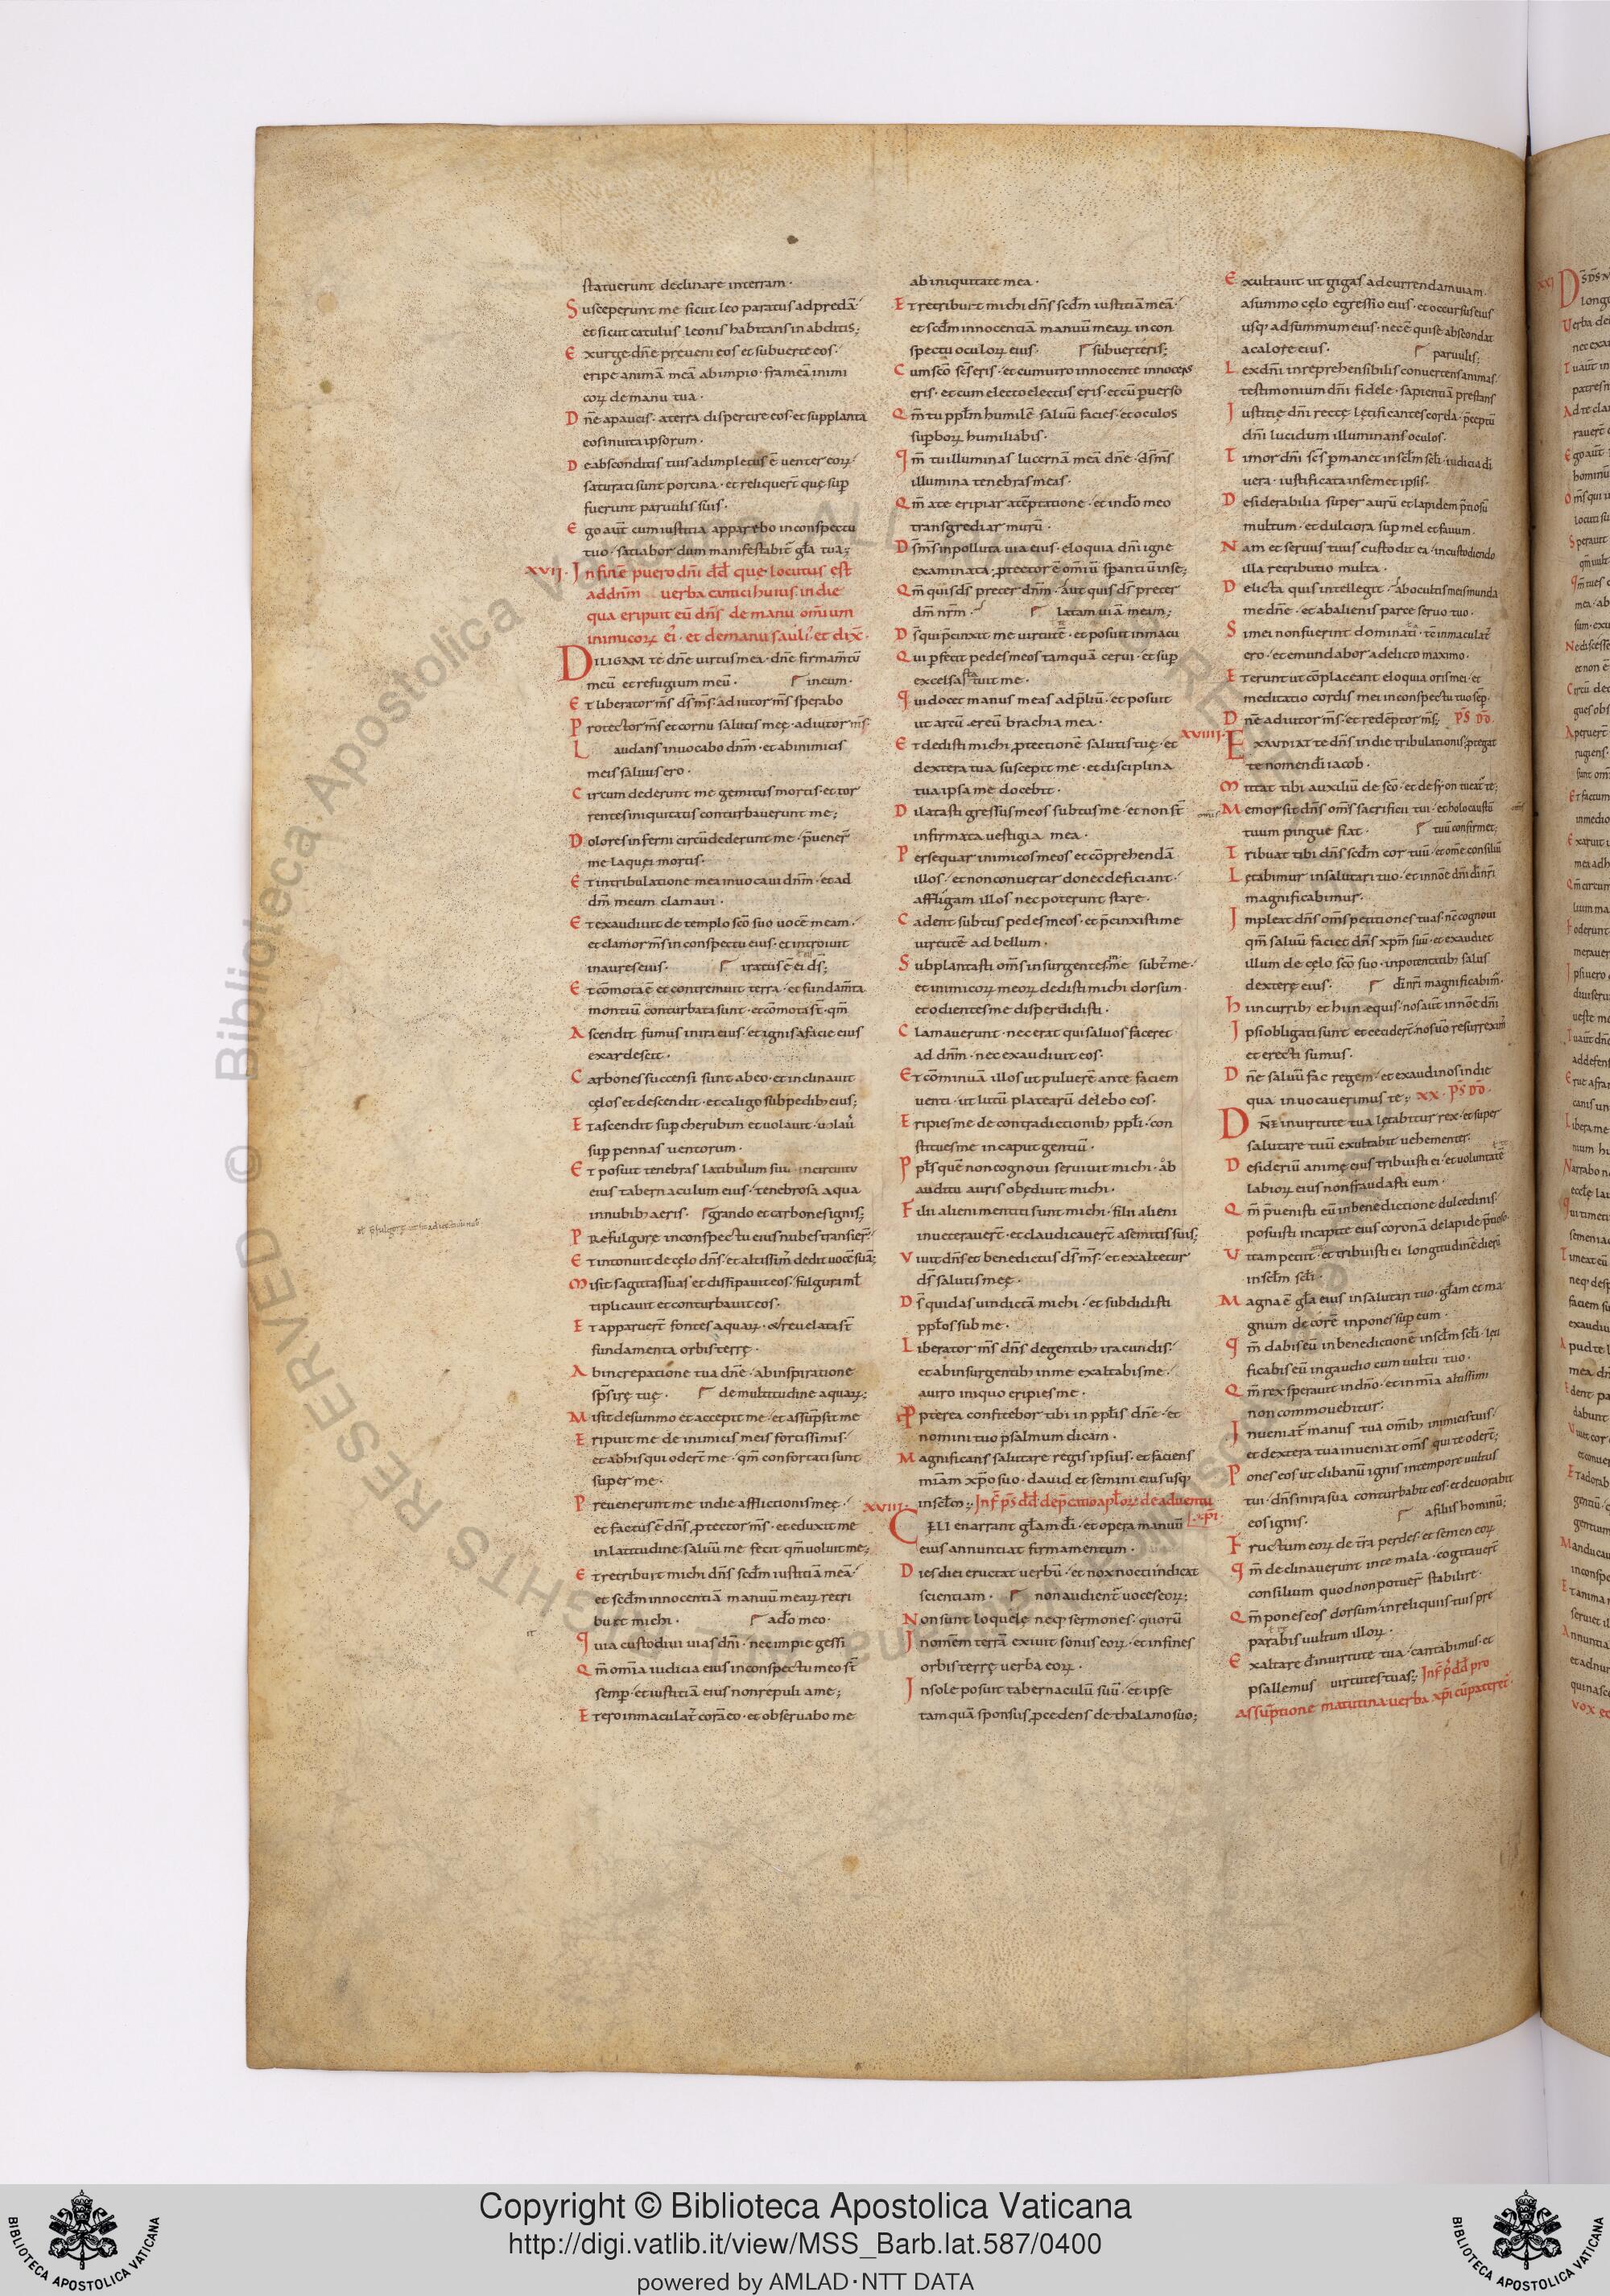 statuerunt declinare interram·
Susceperunt me sicut leo paratus ad predā·
et sicut catulus leonis habitans in abditis;
Exurge dn̄e preveni eos et subverte eos·
eripe animā meā ab impio· frameā inimi
corꝝ de manu tua·
Dn̄e a paucis· a terra dispertire eos· et supplanta
eos in vita ipsorum·
De absconditis tuis adimpletus ē venter eorꝝ·
saturati sunt porcina· et reliquer̄t quę sup̄
fuerunt parvulis suis·
Ego aut̄ cum iustitia apparebo in conspectu
tuo· satiabor dum manifestabit̄ gl̄a tua;
XVII· In finē puero dn̄i dd̄ quę locutus est
ad dn̄m verba cantici huius· in die
qua eripuit eū dn̄s de manu om̄ium
inimicorꝝ ei· et de manu sauli· et dix̄·
DILIGAM te dn̄e virtus mea· dn̄e firmam̄tū
meū et refugium meū· in eum·
Et liberator m̄s ds̄ m̄s· adiutor m̄s sperabo
Protector m̄s et cornu salutis meę· adiutor m̄s·
Laudans invocabo dn̄m· et ab inimicis
meis salvus ero·
Circumdederunt me gemitus mortis· et tor
rentes iniquitatis conturbaverunt me;
Dolores inferni circūdederunt me· p̄vener̄
me laquei mortis·
Et in tribulatione mea invocavi dn̄m· et ad
dm̄ meum clamavi·
Et exaudivit de templo sc̄o suo vocē meam·
et clamor m̄s in conspectu eius· et introivit
in aures eius· iratus ē ei ds̄;
Et cōmota ē et contremuit terra· et fundam̄ta
montiū conturbata sunt· et cōmota st̄· qm̄
Ascendit fumus in ira eius· et ignis a facie eius
exardescit·
Carbones succensi sunt ab eo· et inclinavit
cęlos et descendit· et caligo sub pedibꝫ eius;
Et ascendit sup̄ cherubim et volavit· volav̄
sup̄ pennas ventorum·
Et posuit tenebras latibulum suū· in circuitu
eius tabernaculum eius· tenebrosa aqua
in nubibꝫ aeris· grando et carbones ignis;
Prefulgore in conspectu eius nubes transier̄·
Et intonuit de cęlo dn̄s· et altissim̄ dedit vocē suā;
Misit sagittas suas et dissipavit eos· fulgura ml̄
tiplicavit et conturbavit eos·
Et apparuer̄t fontes aquarꝝ· & revelata st̄
fundamenta orbis terrę·
Ab increpatione tua dn̄e· ab inspiratione
sp̄s irę tuę· de multitudine aquarꝝ;
Misit de summo et accepit me· et assūpsit me
Eripuit me de inimicis meis fortissimis·
et ab his qui oder̄t me· qm̄ confortati sunt
super me·
Prevenerunt me in die afflictionis meę·
et factus ē dn̄s protector m̄s· et eduxit me
in latitudinē salvū me fecit qm̄ voluit me;
Et retribuit michi dn̄s scd̄m iustitiā meā·
et scd̄m innocentiā manuū mearꝝ retri
buet michi· a dō meo·
Quia custodivi vias dn̄i· nec impie gessi
Qm̄ om̄ia iudicia eius in conspectu meo st̄
semp̄· et iustitiā eius non repuli a me;
Et ero inmaculat̄ corā eo· et observabo me
ab iniquitate mea·
Et retribuet michi dn̄s scd̄m iustitiā meā·
et scd̄m innocentiā manuū mearꝝ in con
spectu oculorꝝ eius· subverteris;
Cum sc̄o sc̄s eris· et cum viro innocente innocens
eris· et cum electo electus eris· et cū pverso
Qm̄ tu ppl̄m humilē salvū facies· et oculos
supborꝝ humiliabis·
Qm̄ tu illuminas lucernā meā dn̄e· ds̄ m̄s
illumina tenebras meas·
Qm̄ a te eripiar a tēptatione· et in dō meo
transgrediar murū·
Ds̄ m̄s inpolluta via eius· eloquia dn̄i igne
examinata· protector ē om̄iū sperantiū in se;
Qm̄ quis ds̄ preter dn̄m· aut quis ds̄ preter
dm̄ nr̄m· latam viā meam;
Ds̄ qui p̄cinxit me virtutē· et posuit inmacu
Qui pfecit pedes meos tamquā cervi· et sup̄
excelsa statuit me·
Qui docet manus meas ad p̄liū· et posuit
ut arcū ereū brachia mea·
Et dedisti michi protectionē salutis tuę· et
dextera tua suscepit me· et disciplina
tua ipsa me docebit·
Dilatasti gressus meos subtus me· et non st̄
infirmata vestigia mea·
Persequar inimicos meos et cōprehendā
illos· et non convertar donec deficiant·
affligam illos nec poterunt stare·
Cadent subtus pedes meos· et p̄cinxisti me
virtutē ad bellum·
Subplantasti om̄s insurgentes in me subt̄ me·
et inimicorꝝ meorꝝ dedisti michi dorsum·
et odientes me disperdidisti·
Clamaverunt· nec erat qui salvos faceret
ad dn̄m· nec exaudivit eos·
Et cōminuā illos ut pulverē ante faciem
venti· ut lutū platearū delebo eos·
Eripies me de contradictionibꝫ ppl̄i· con
stitues me in caput gentiū·
Ppl̄s quē non cognovi servivit michi· ab
auditu auris obędivit michi·
Filii alieni mentiti sunt michi· filii alieni
inveteraver̄t· et claudicaver̄t a semitis suis;
Vivit dn̄s et benedictus ds̄ m̄s· et exaltetur
ds̄ salutis meę·
Ds̄ qui das vindictā michi· et subdidisti
ppl̄os sub me·
Liberator m̄s dn̄s de gentibꝫ iracundis·
et ab insurgentibꝫ in me exaltabis me·
a viro iniquo eripies me·
Propterea confitebor tibi in ppl̄is dn̄e· et
nomini tuo psalmum dicam·
Magnificans salutare regis ipsius· et faciens
mīam xp̄o suo· david et semini eius usqꝫ
in scl̄m; In f̄ ps̄ dd̄ de p̄catio apl̄orꝝ de adventu
XVIII· CĘLI enarrant gl̄am dī· et opera manuū xp̄i·
eius annuntiat firmamentum·
Dies diei eructat verbū· et nox nocti indicat
scientiam· non audient̄ voces eorꝝ;
Non sunt loquelę neqꝫ sermones· quorū
In omnem terrā exivit sonus eorꝝ· et in fines
orbis terrę verba eorꝝ·
In sole posuit tabernaculū suū· et ipse
tamquā sponsus procedens de thalamo suo;
Exultavit ut gigas ad currendam viam·
a summo cęlo egressio eius· et occursus eius
usqꝫ ad summum eius· nec ē qui se abscondat
a calore eius· parvulis;
Lex dn̄i inreprehensibilis convertens animas·
testimonium dn̄i fidele· sapientiā prestans
Iustitię dn̄i rectę lętificantes corda· p̄ceptū
dn̄i lucidum illuminans oculos·
Timor dn̄i sc̄s pmanet in scl̄m scl̄i· iudicia dī
vera· iustificata in semet ipsis·
Desiderabilia super aurū et lapidem p̄tiosū
multum· et dulciora sup̄ mel et favum·
Nam et servus tuus custodit ea· in custodiendo
illa retributio multa·
Delicta quis intellegit· ab occultis meis munda
me dn̄e· et ab alienis parce servo tuo·
Si mei non fuerint dominati· tē inmaculat̄
ero· et emundabor a delicto maximo·
Et erunt ut cōplaceant eloquia oris mei· et
meditatio cordis mei in conspectu tuo sēp·
Dn̄e adiutor m̄s· et redēptor m̄s; PS̄ DD̄·
XVIIII· EXAUDIAT te dn̄s in die tribulationis· protegat
te nomen dī iacob·
Mittat tibi auxiliū de sc̄o· et de syon tueat̄ te;
Memor sit dn̄s om̄s sacrificii tui· et holocaustū
tuum pingue fiat· tuū confirmet;
Tribuat tibi dn̄s scd̄m cor tuū· et om̄e consiliū
Lętabimur in salutari tuo· et in nōe dn̄i dī nr̄i
magnificabimur·
Impleat dn̄s om̄s petitiones tuas· nc̄ cognovi
qm̄ salvū faciet dn̄s xp̄m suū· et exaudiet
illum de cęlo sc̄o suo· in potentatibꝫ salus
dexterę eius· dī nr̄i magnificabim̄·
Hii in curribꝫ et hii in equis· nos aut̄ in nōe dn̄i
Ipsi obligati sunt et cecider̄t· nos vō resurrexim̄
et erecti sumus·
Dn̄e salvū fac regem· et exaudi nos in die
qua invocaverimus te; XX· PS̄ DD̄·
DN̄E in virtute tua lętabitur rex· et super
salutare tuū exultabit vehementer·
Desideriū animę eius tribuisti ei· et voluntatē
labiorꝝ eius non fraudasti eum·
Qm̄ p̄venisti eū in benedictione dulcedinis·
posuisti in capite eius coronā de lapide p̄tioso·
Vitam petiit· et tribuisti ei longitudinē dierū
in scl̄m scl̄i·
Magna ē gl̄a eius in salutari tuo· gl̄am et ma
gnum decorē inpones sup̄ eum·
Qm̄ dabis eū in benedictionē in scl̄m scl̄i· lęti
ficabis eū in gaudio cum vultu tuo·
Qm̄ rex speravit in dn̄o· et in mīa altissimi
non commovebitur·
Inveniat̄ manus tua om̄ibꝫ inimicis tuis·
et dextera tua inveniat om̄s qui te oder̄t;
Pones eos ut clibanū ignis in tempore vultus
tui· dn̄s in ira sua conturbabit eos· et devorabit
eos ignis· a filiis hominū;
Fructum eorꝝ de tr̄a perdes· et semen eorꝝ
Qm̄ declinaverunt in te mala· cogitaver̄t
consilium quod non potuer̄ stabilire·
Qm̄ pones eos dorsum· in reliquiis tuis pre
parabis vultum illorꝝ·
Exaltare dn̄e in virtute tua· cantabimus· et
psallemus virtutes tuas; In f̄ p̄ dd̄ pro
assūptione matutina verba xp̄i cū pateret̄·
Copyright © Biblioteca Apostolica Vaticana
http://digi.vatlib.it/view/MSS_Barb.lat.587/0400
powered by AMLAD·NTT DATA
BIBLIOTECA APOSTOLICA VATICANA
BIBLIOTECA APOSTOLICA VATICANA